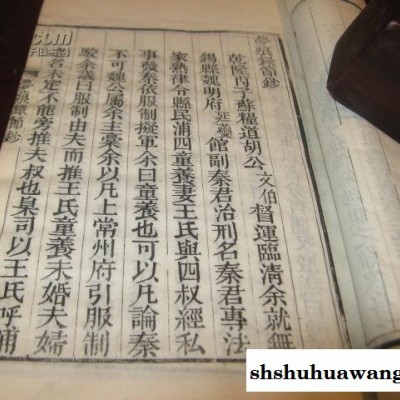 夢痕錄節鈔
乾隆丙子蘇糧道胡公文伯督運臨清余就無
錫縣魏明府廷夔館副秦君治刑名秦君專法
家熟律令縣民浦四童養妻王氏與四叔經私
事發秦依服制擬軍余曰童養也可以凡論秦
不可魏公屬余主稾余以凡上常州府引服制
駮余議曰服制由夫而推王氏童養未婚夫婦
名未定不能旁推夫叔也臬司以王氏呼浦
夢痕錄節鈔
com
shshuhuawang